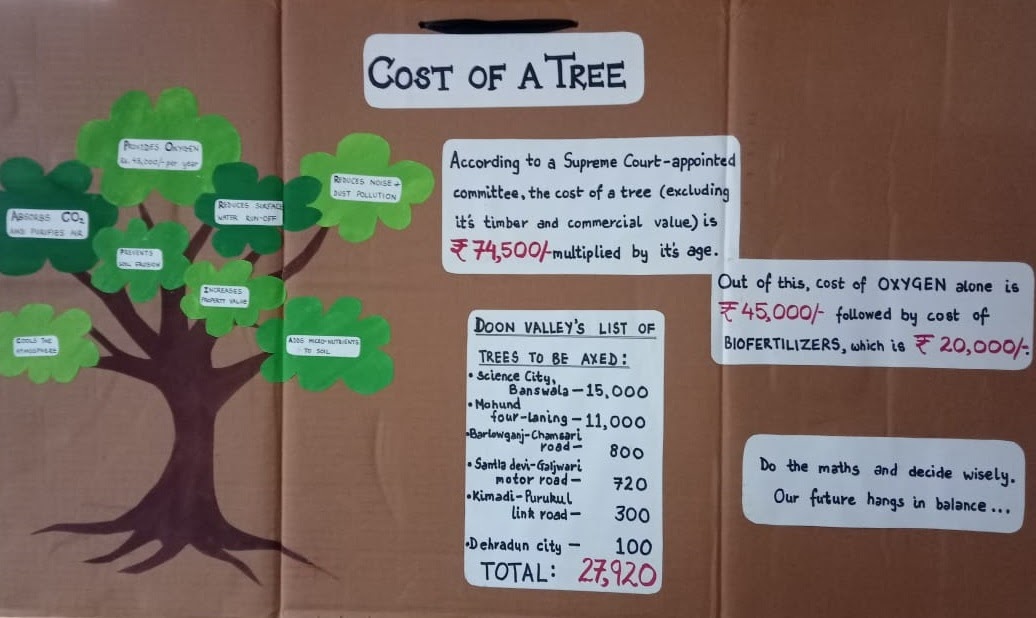 COST OF A TREE
PROVIDES OXYGEN
Rs. 45,000/- per year
ABSORBS CO2
AND PURIFIES AIR
REDUCES SURFACE
WATER RUN-OFF
REDUCES NOISE +
DUST POLLUTION
PREVENTS
SOIL EROSION
INCREASES
PROPERTY VALUE
COOLS THE
ATMOSPHERE
ADDS MICRO-NUTRIENTS
TO SOIL
According to a Supreme Court-appointed
committee, the cost of a tree (excluding
it's timber and commercial value) is
₹ 74,500/- multiplied by it's age.
Out of this, cost of OXYGEN alone is
₹ 45,000/- followed by cost of
BIOFERTILIZERS, which is ₹ 20,000/-
DOON VALLEY'S LIST OF
TREES TO BE AXED:
• Science City,
Banswala – 15,000
• Mohund
four-laning – 11,000
• Barlowganj-Chamsari
road – 800
• Santla devi-Galjwari
motor road – 720
• Kimadi-Purukul
link road – 300
• Dehradun city – 100
TOTAL: 27,920
Do the maths and decide wisely.
Our future hangs in balance...